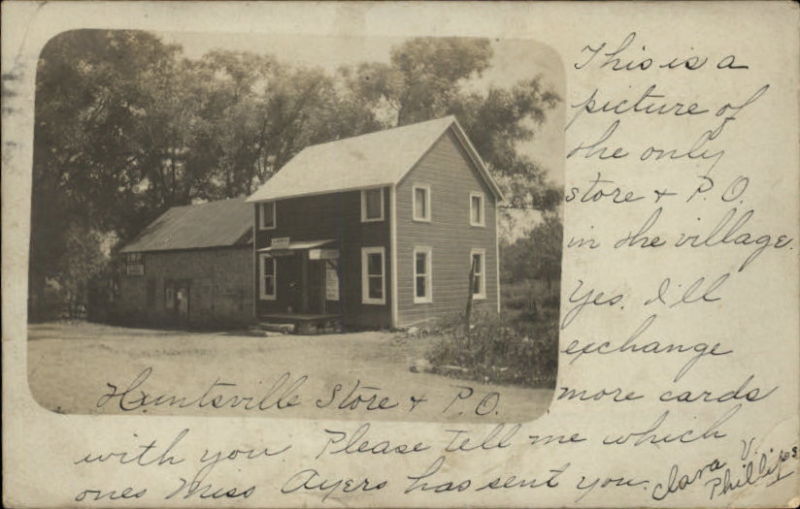 This is a
picture of
the only
store + P.O.
in the village.
Yes, I'll
exchange
more cards
with you. Please tell me which
ones Miss Ayers has sent you.
Clara V.
Phillips
Huntsville Store + P.O.